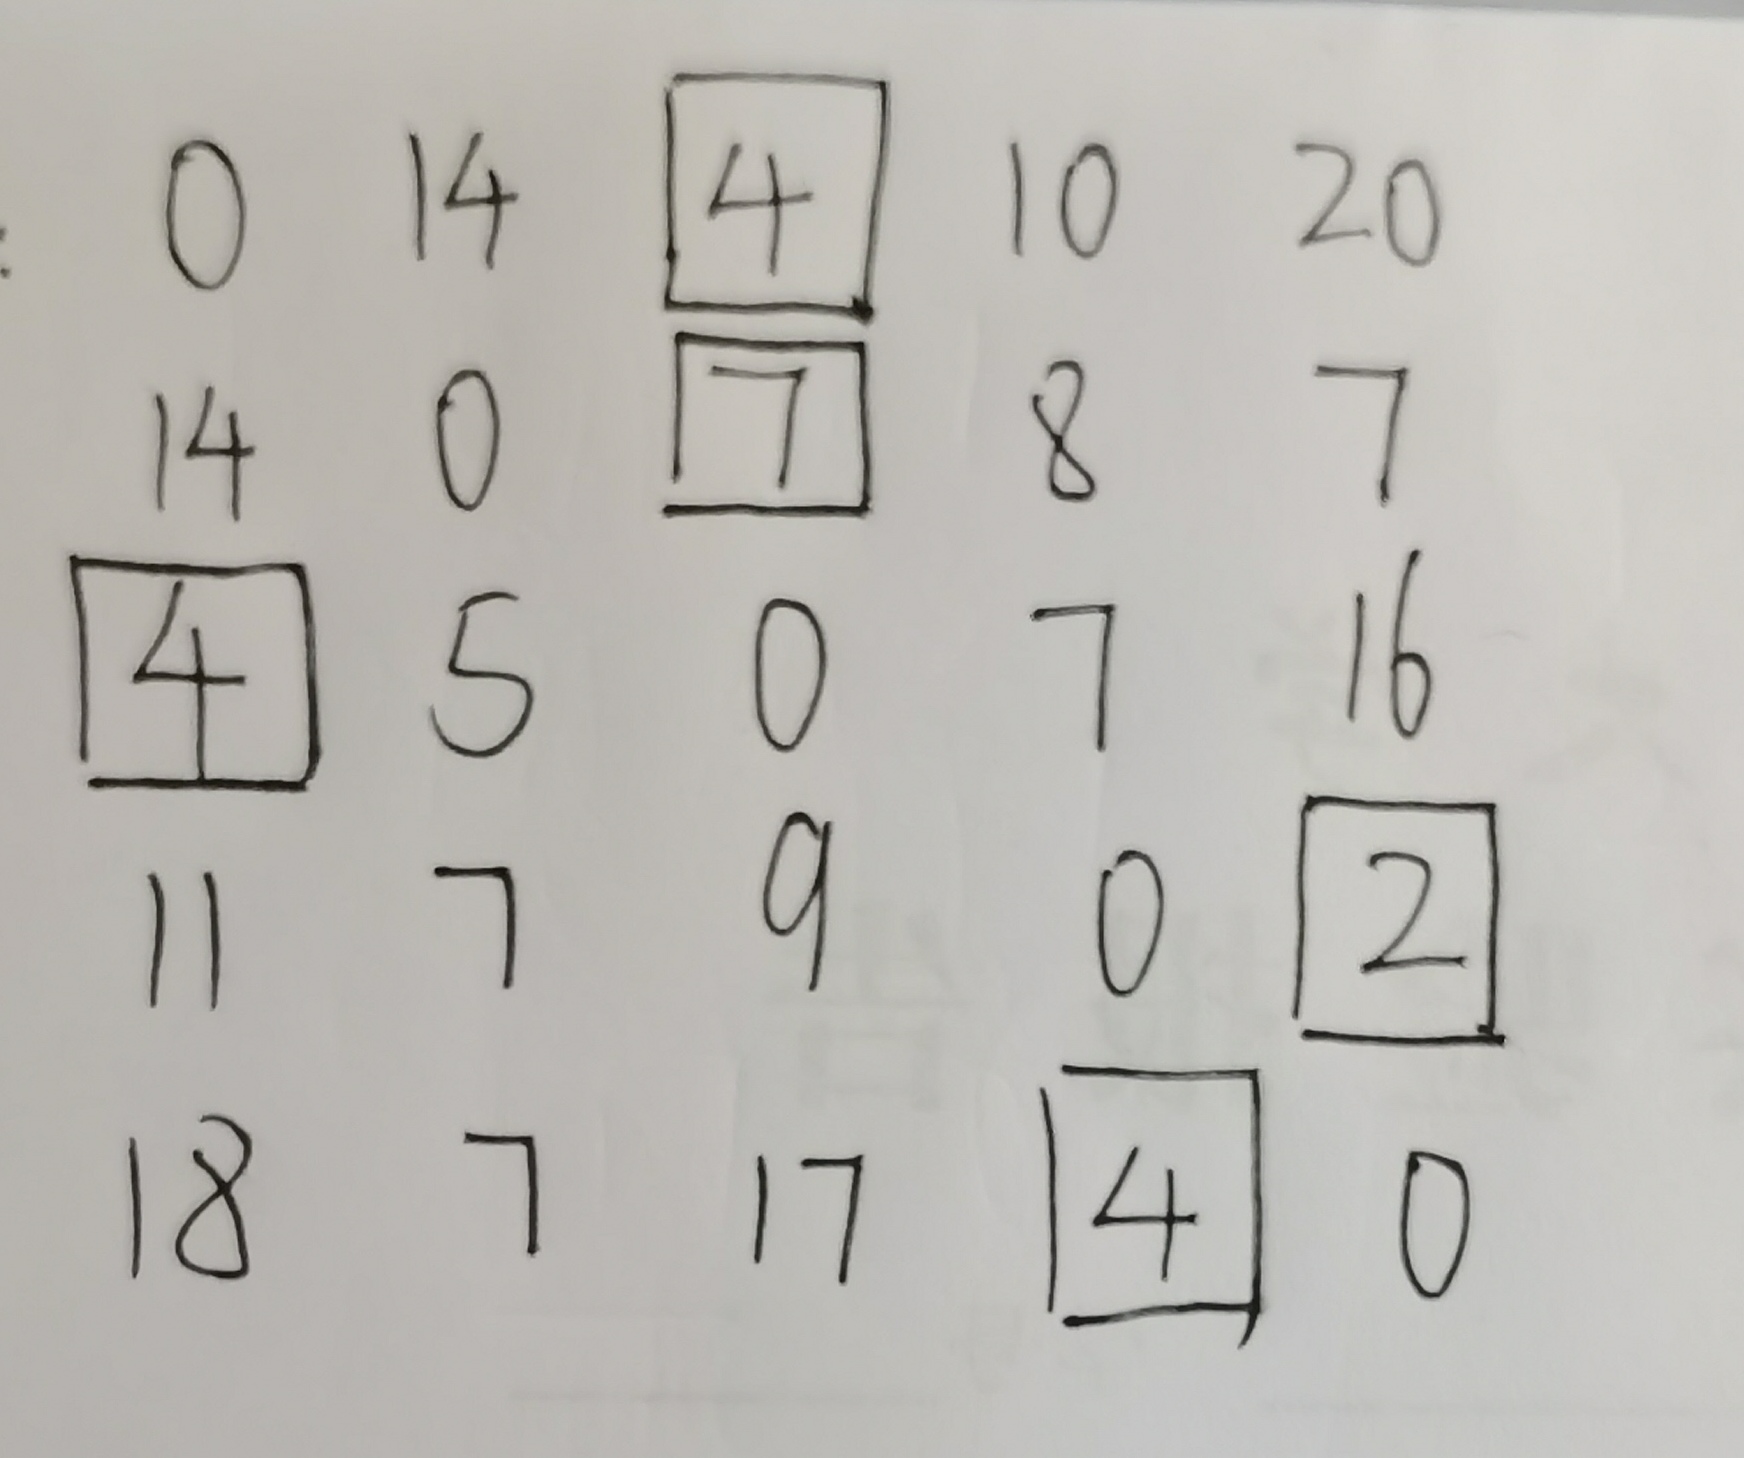 : 0 14 4 10 20
14 0 7 8 7
4 5 0 7 16
11 7 9 0 2
18 7 17 4 0